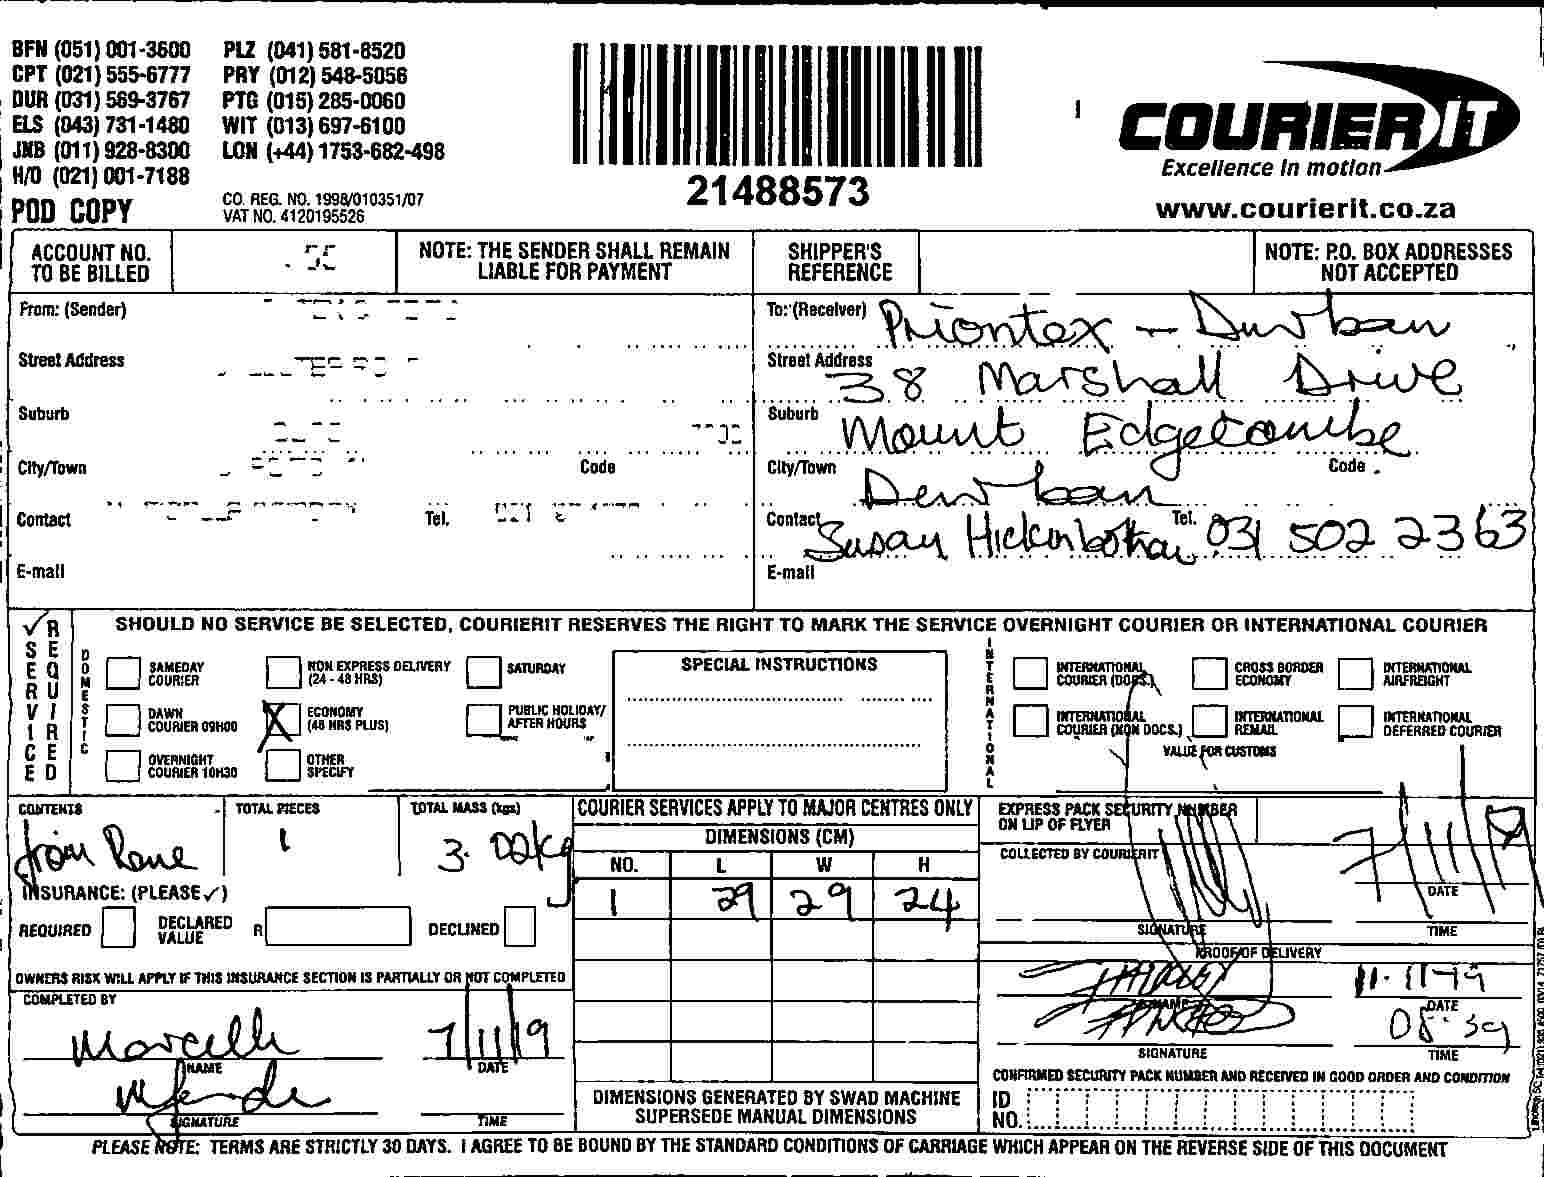 BFN (051) 001-3600 PLZ (041) 581-8520
CPT (021) 555-6777 PRY (012) 548-5056
DUR (031) 569-3767 PTG (015) 285-0060
ELS (043) 731-1480 WIT (013) 697-6100
JNB (011) 928-8300 LON (+44) 1753-682-498
H/O (021) 001-7188
POD COPY
CO. REG. NO. 1998/010351/07
VAT NO. 4120195526
21488573
COURIERIT
Excellence in motion
www.courierit.co.za
ACCOUNT NO. TO BE BILLED
NOTE: THE SENDER SHALL REMAIN LIABLE FOR PAYMENT
SHIPPER'S REFERENCE
NOTE: P.O. BOX ADDRESSES NOT ACCEPTED
From: (Sender)
Street Address
Suburb
City/Town Code
Contact Tel.
E-mail
To: (Receiver) Priontex - Durban
Street Address 38 Marshall Drive
Suburb Mount Edgecombe
City/Town Durban Code
Contact Susan Tel. 031 502 2363
E-mail
SERVICE REQUIRED
SHOULD NO SERVICE BE SELECTED, COURIERIT RESERVES THE RIGHT TO MARK THE SERVICE OVERNIGHT COURIER OR INTERNATIONAL COURIER
DOMESTIC
SAMEDAY COURIER
NON EXPRESS DELIVERY (24 - 48 HRS)
SATURDAY
DAWN COURIER 09H00
X ECONOMY (48 HRS PLUS)
PUBLIC HOLIDAY/ AFTER HOURS
OVERNIGHT COURIER 10H30
OTHER SPECIFY
SPECIAL INSTRUCTIONS
INTERNATIONAL
INTERNATIONAL COURIER (DOCS.)
CROSS BORDER ECONOMY
INTERNATIONAL AIRFREIGHT
INTERNATIONAL COURIER (NON DOCS.)
INTERNATIONAL REMAIL
INTERNATIONAL DEFERRED COURIER
VALUE FOR CUSTOMS
CONTENTS
TOTAL PIECES 1
TOTAL MASS (kgs) 3.02kg
INSURANCE: (PLEASE ✓)
REQUIRED DECLARED VALUE R DECLINED
OWNERS RISK WILL APPLY IF THIS INSURANCE SECTION IS PARTIALLY OR NOT COMPLETED
COMPLETED BY
Marcelle 7/11/19
NAME DATE
SIGNATURE TIME
COURIER SERVICES APPLY TO MAJOR CENTRES ONLY
DIMENSIONS (CM)
NO. L W H
1 29 29 24
DIMENSIONS GENERATED BY SWAD MACHINE SUPERSEDE MANUAL DIMENSIONS
EXPRESS PACK SECURITY NUMBER ON LIP OF FLYER
COLLECTED BY COURIERIT
7/11/19
DATE
SIGNATURE TIME
PROOF OF DELIVERY
11-11-19
NAME DATE
08:39
SIGNATURE TIME
CONFIRMED SECURITY PACK NUMBER AND RECEIVED IN GOOD ORDER AND CONDITION
ID NO.
PLEASE NOTE: TERMS ARE STRICTLY 30 DAYS. I AGREE TO BE BOUND BY THE STANDARD CONDITIONS OF CARRIAGE WHICH APPEAR ON THE REVERSE SIDE OF THIS DOCUMENT